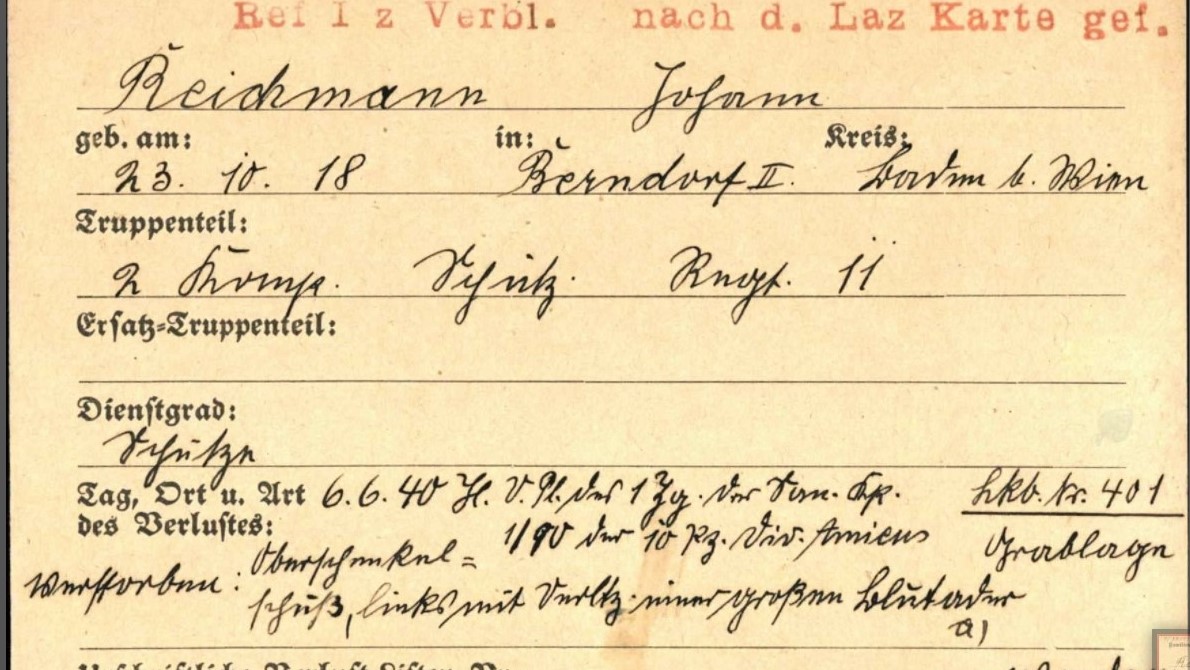 Ref I z Verbl. nach d. Laz Karte gef.
Reichmann Johann
geb. am: in: Kreis:
23. 10. 18 Berndorf II. Baden b. Wien
Truppenteil:
2 Komp. Schütz. Regt. 11
Ersatz-Truppenteil:
Dienstgrad:
Schütze
Tag, Ort u. Art 6.6.40 H. V. Pl. des 1 Zg. der San. Kp. Lkb. Nr. 401
des Verlustes: 1/90 der 10 Pz. Div. Amiens Grablage
verstorben: Oberschenkel=
schuß, links mit Verltz. einer großen Blutader
a)